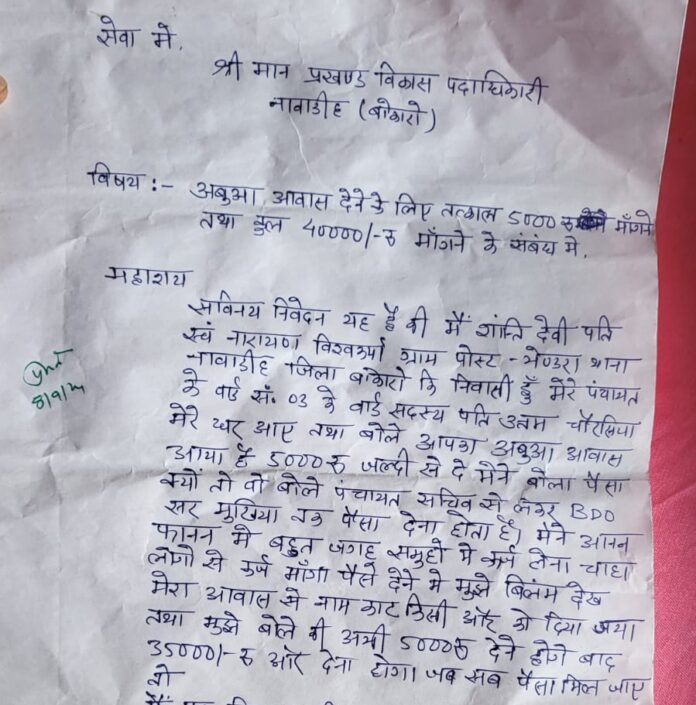 सेवा में,
श्री मान प्रखण्ड विकास पदाधिकारी
नावाडीह (बोकारो)
विषय :- अबुआ आवास देने के लिए तत्काल 5000 रु माँगने
तथा कुल 40000/-रु माँगने के संबंध में,
महाशय
सविनय निवेदन यह है की मैं शांति देवी पति
स्वं नारायण विश्वकर्मा ग्राम पोस्ट - भेण्डरा थाना
नावाडीह जिला बोकारो कि निवासी हूँ मेरे पंचायत
के वार्ड सं. 03 के वार्ड सदस्य पति उत्तम चौरसिया
मेरे घर आए तथा बोले आपका अबुआ आवास
आया है 5000रु जल्दी से दे मेने बोला पैसा
क्यों तो वो बोले पंचायत सचिव से लेकर BDO
सर मुखिया तक पैसा देना होता है। मेने आनन
फानन में बहुत जगह समुहो में कर्ज लेना चाहा
लोगो से कर्ज माँगा पैसे देने में मुझे बिलंम देख
मेरा आवास से नाम काट किसी और को दिया गया
तथा मुझे बोले की अभी 5000रु देने होगे बाद
35000/-रु और देना होगा। जब सब पैसा मिल जाए
तो
8/9/24